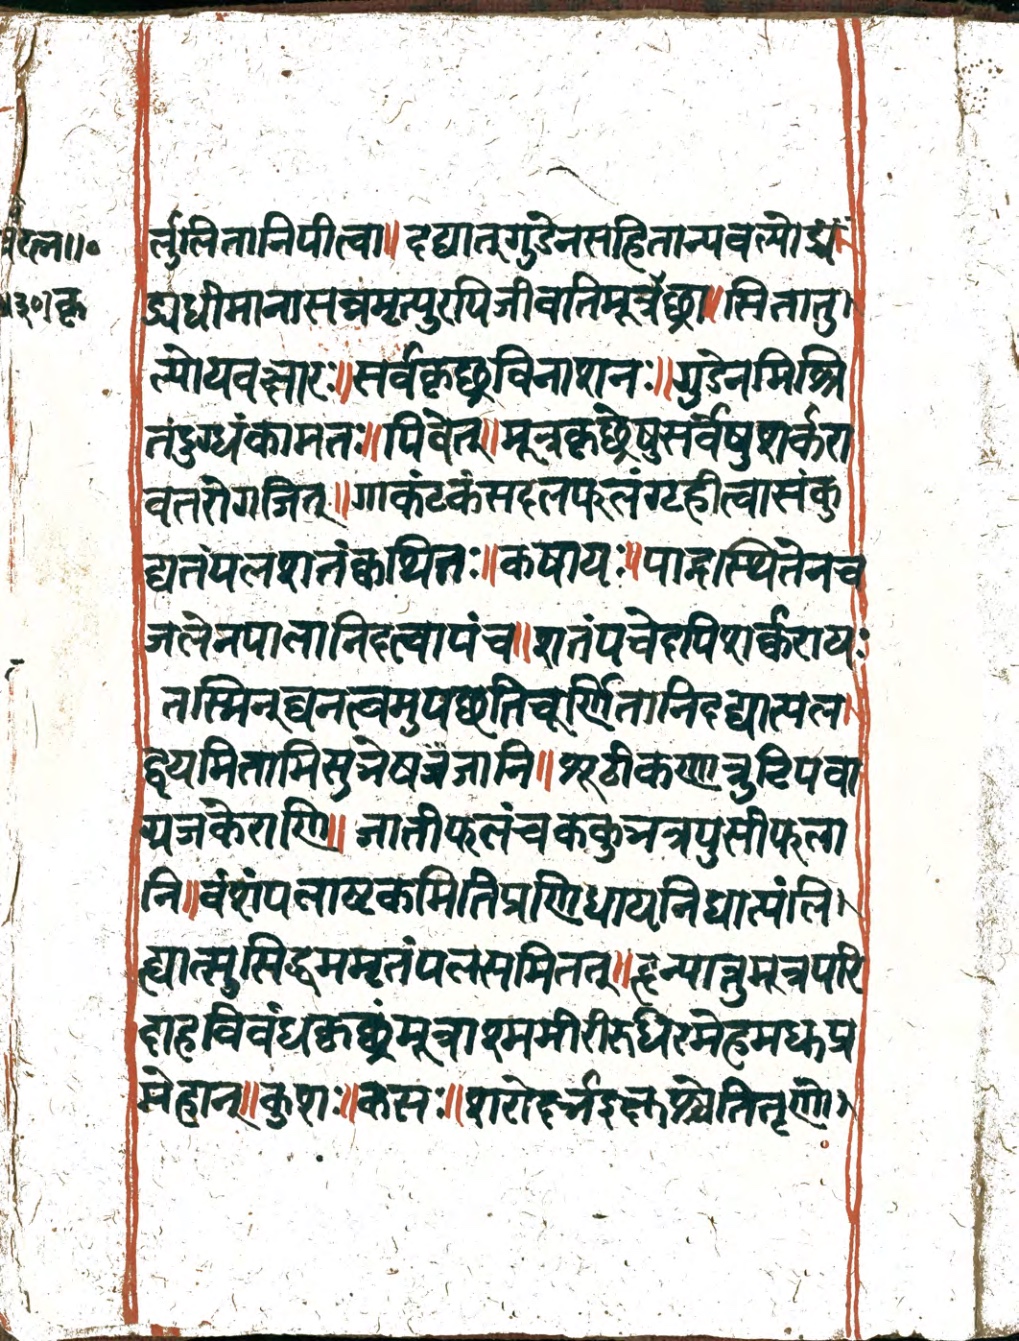 र्लुलितानिपीत्वा॥दद्यात्गुडेनसहितान्पवल्पो
ड्यधीमानासन्नमृत्पुरपिजीवतिमूत्रेछ्रा॥सितातु
ल्पोयवक्षारः॥सर्वकृछ्रविनाशनः॥गुडेनमिश्रि
तंदुग्धंकामतः॥पिवेत्॥मूत्रकृछ्रेषुसर्वेषुशर्करा
वतरोगजित्॥गाकंटकंसदलफलंग्टहीत्वासंकु
द्यतंपलशतंक्वथितः॥कषायः॥पादास्थितेनच
जलेनपालानिदत्वापंच॥शतंपचेदपिशर्कराय:
तस्मिन्घनत्वमुपछतिचूर्णितानिदद्यात्पल
द्वयमिताभिसुत्रेषजंजानि॥श्रूठीकणात्रुटिपवा
ग्रजकेराणि॥जातीफलंचककुत्रत्रपुसीफला
नि॥वंशंपलाष्टकमितिप्रणिधायनिद्यात्पंलि
ह्यात्सुसिद्धममृतंपलसमितत्॥हन्पात्तुमूत्रपरि
दाहविवंधकृछ्रंमूत्राश्ममीरीरुधिरमेहमधुप्र
मेहान्॥कुशः॥कसः॥शरोर्दर्त्रइक्तश्चेतितृणो